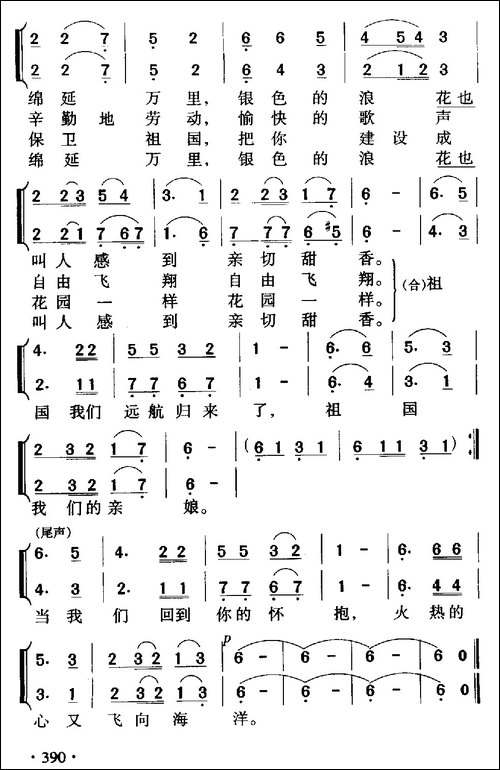 2 2 7 | 5 2 | 6 6 5 | 4 5 4 3
2 2 7 | 5 2 | 6 4 3 | 2 1 2 3
绵延 万里，银色的浪 花也
辛勤地劳动，愉快的歌 声
保卫 祖国，把你 建设成
绵延 万里，银色的浪 花也
2 2 3 5 4 | 3· 1 | 2 2 3 1 7 | 6 - | 6· 5
2 2 1 7 6 7 | 1· 6 | 7 7 7 6 #5 | 6 - | 4· 3
叫人感 到 亲切甜 香。
自由飞 翔 自由飞 翔。
花园一 样 花园一 样。
叫人感 到 亲切甜 香。
(合)祖
4· 2 2 | 5 5 3 2 | 1 - | 6· 6 | 5· 3
2· 1 1 | 7 7 6 7 | 1 - | 6· 4 | 3· 1
国我们 远航归来 了， 祖 国
2 3 2 1 7 | 6 - | (6 1 3 1 | 6 1 1 3 1) :‖
2 3 2 1 7 | 6 -
我 们的亲 娘。
(尾声)
6· 5 | 4· 2 2 | 5 5 3 2 | 1 - | 6· 6 6
4· 3 | 2· 1 1 | 7 7 6 7 | 1 - | 6· 4 4
当我 们 回到 你的怀 抱， 火热的
p
5· 3 | 2 3 2 1 3 | 6 - | 6 - | 6 - | 6 0
3· 1 | 2 3 2 1 3 | 6 - | 6 - | 6 - | 6 0
心又 飞向海 洋。
· 390 ·